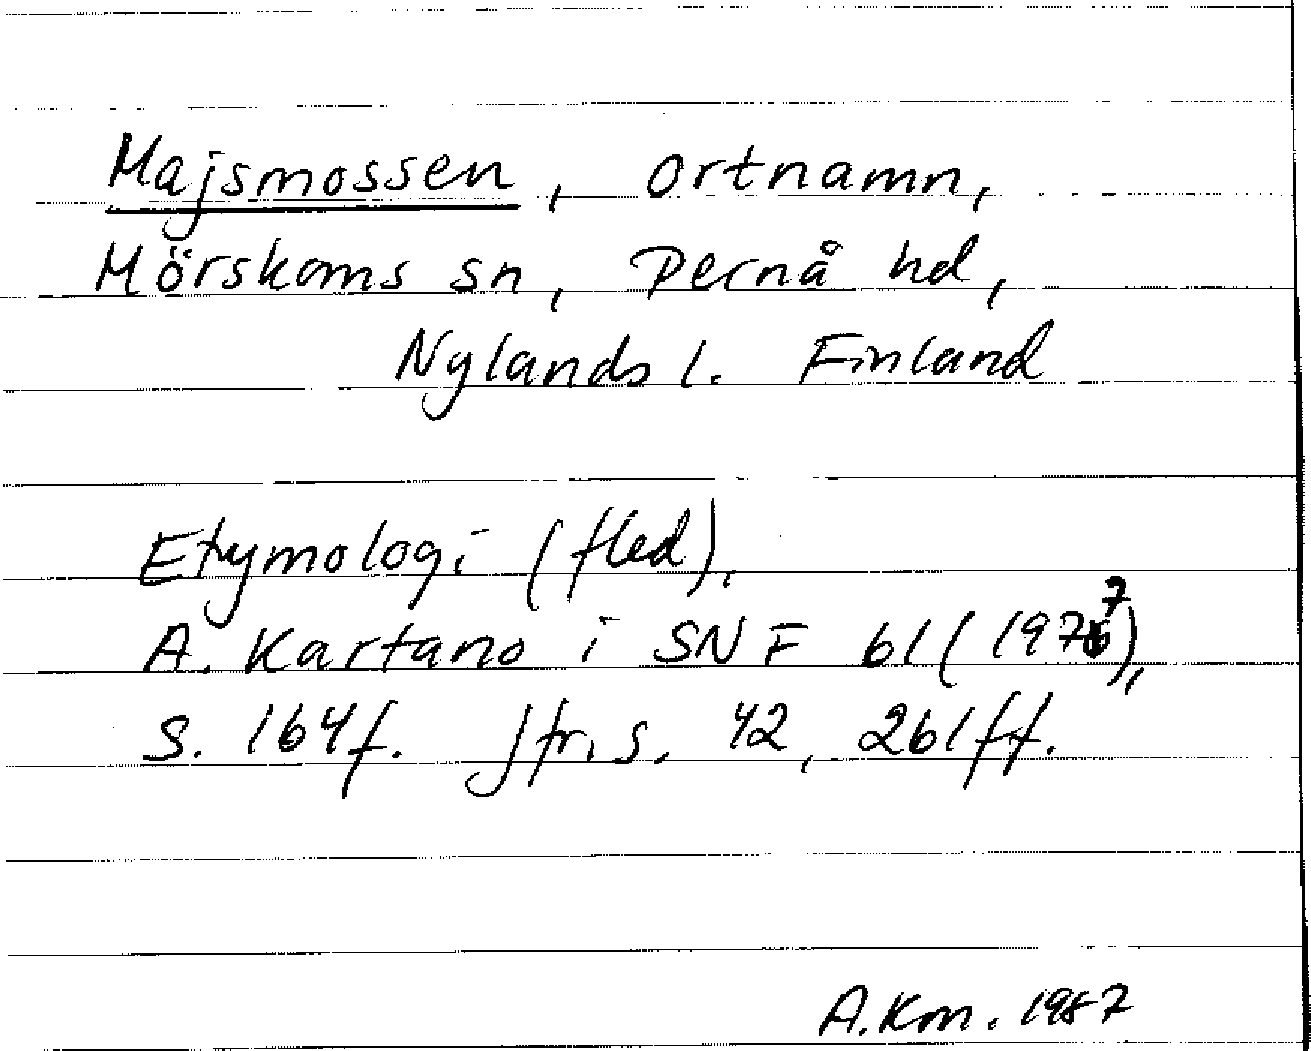 Majsmossen, ortnamn,
Mörskoms sn, Pernå hd,
Nylands l. Finland
Etymologi (fled).
A. Kartano i SNF 61 (1977),
s. 164f. Jfr s. 42, 261ff.
A.Km. 1987